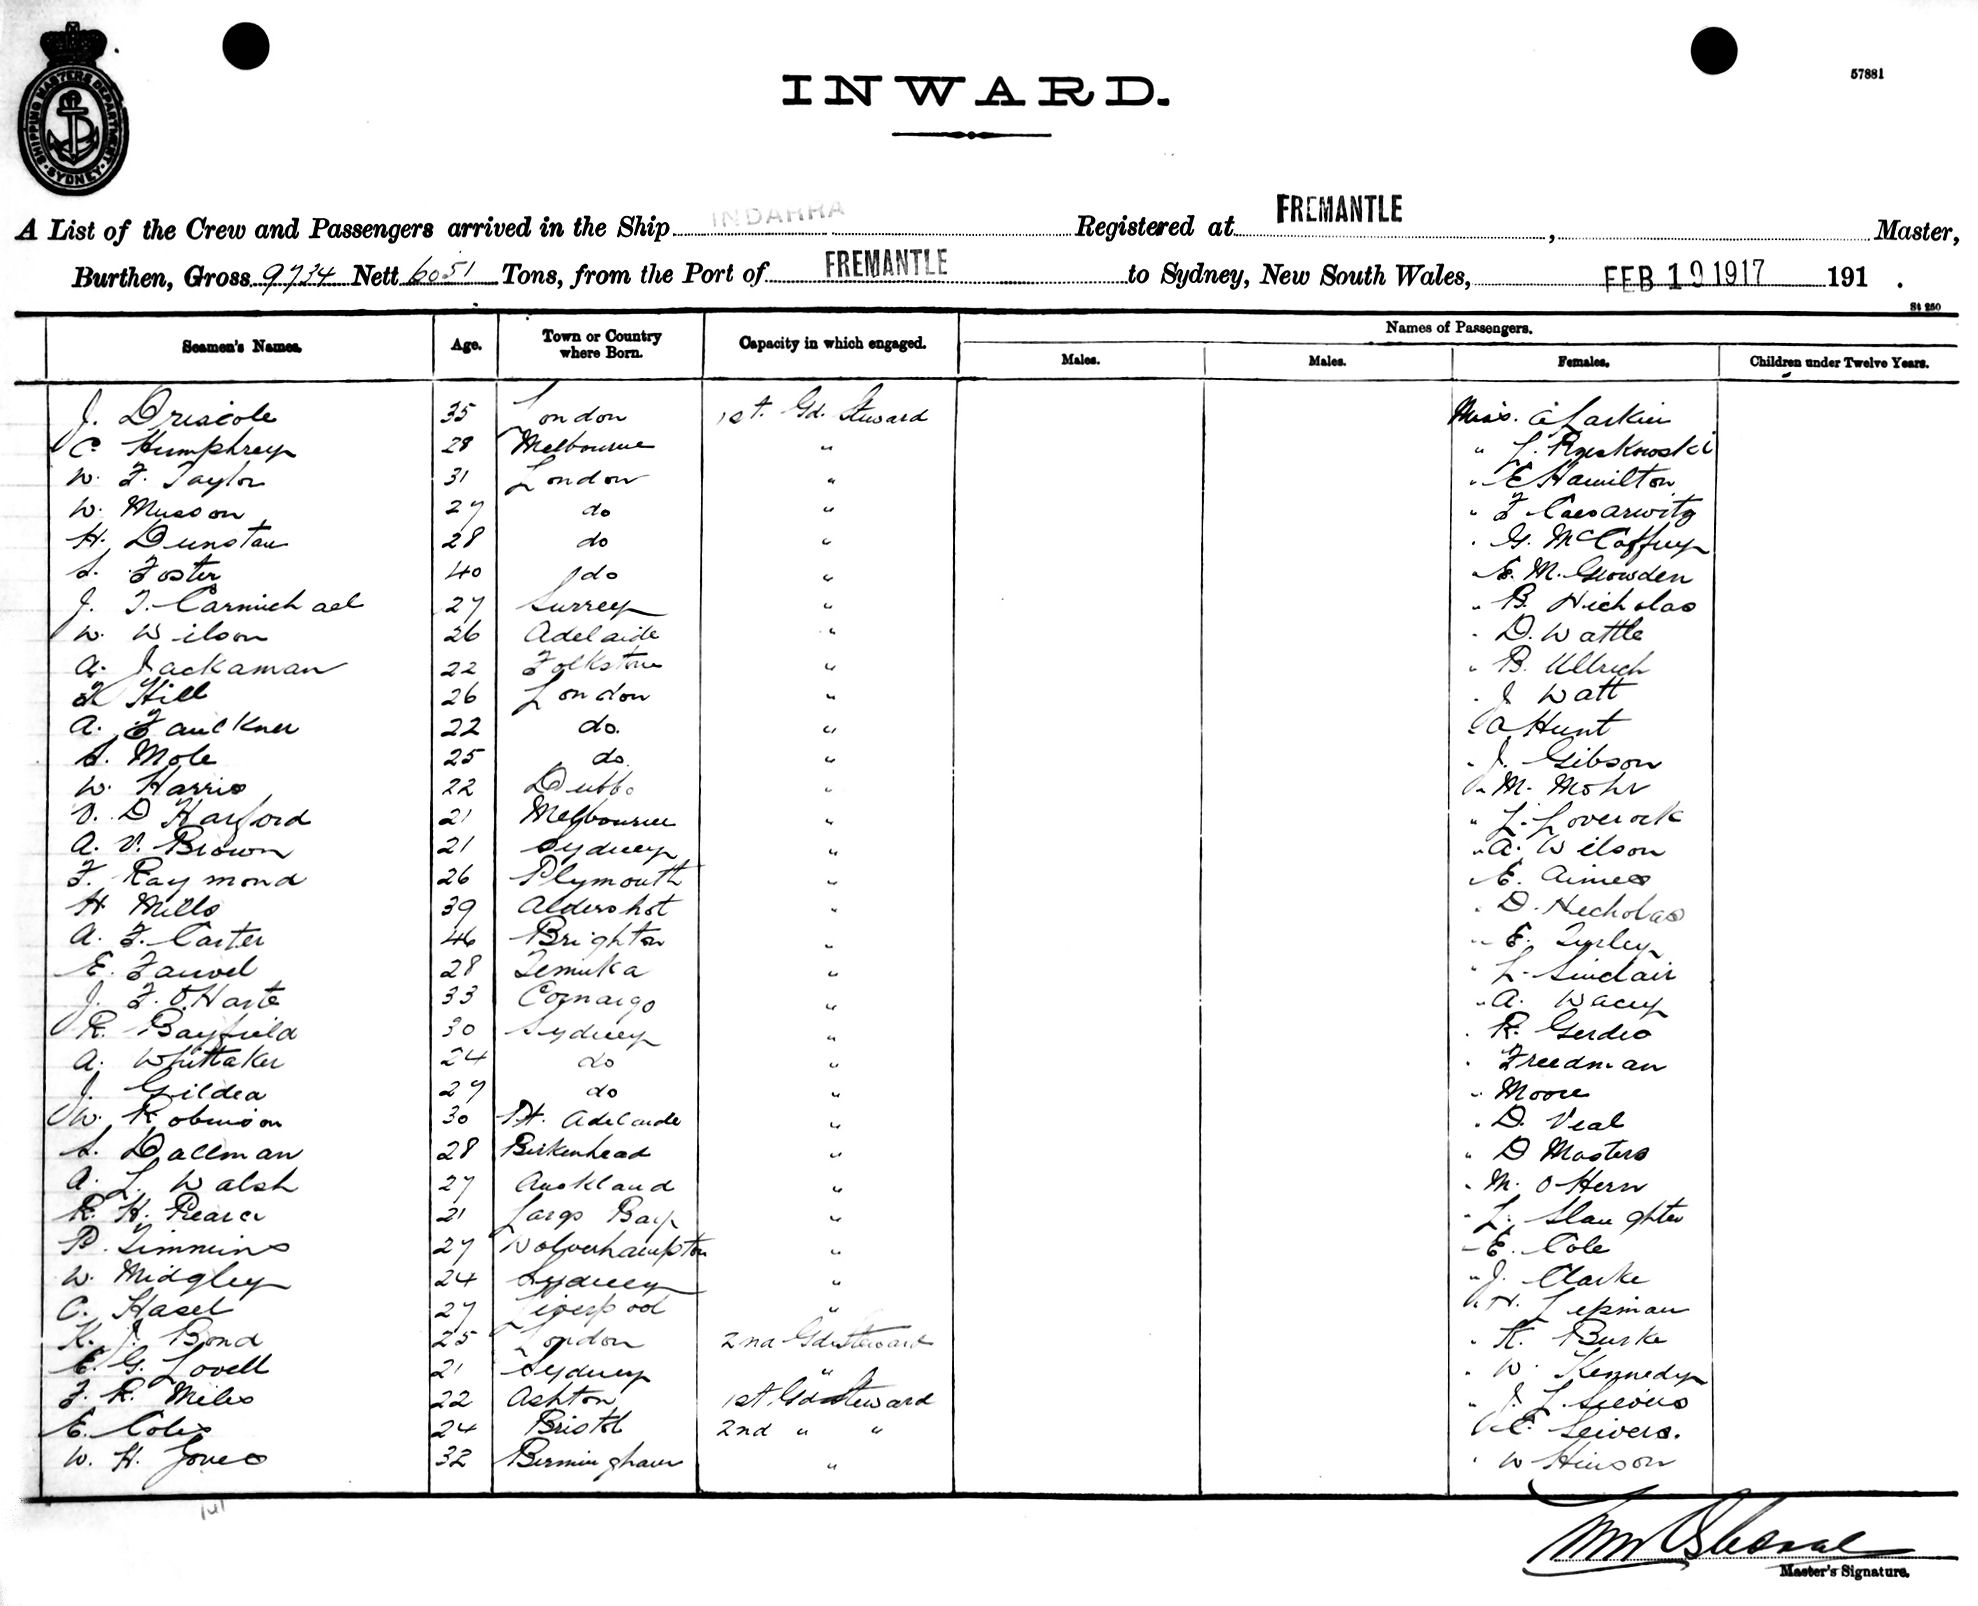 SHIPPING MASTERS DEPARTMENT
SYDNEY
57881
INWARD.
A List of the Crew and Passengers arrived in the Ship INDARRA Registered at FREMANTLE , Master,
Burthen, Gross 9734 Nett 6051 Tons, from the Port of FREMANTLE to Sydney, New South Wales, FEB 19 1917 191 .
St 250
Seamen's Names. Age. Town or Country where Born. Capacity in which engaged. Names of Passengers.
Males. Males. Females. Children under Twelve Years.
J. Driscole 35 London 1st. Gd. Steward Miss. C Larkin
C. Humphrey 28 Melbourne " " L.
W. F. Taylor 31 London " " E Hamilton
W. Musson 27 do " " F Caesarwitz
H. Dunstan 28 do " " G. McCaffrey
S. Foster 40 do " " E. M. Growden
J. T. Carmichael 27 Surrey " " B. Nicholas
W. Wilson 26 Adelaide " " D. Wattle
A. Jackaman 22 Folkstone " " B. Ullrich
F. Hill 26 London " " J Watt
A. Faulkner 22 do. " " A Hunt
S. Mole 25 do. " " J. Gibson
W. Harris 22 Dubbo " " M. Mohr
V. D Harford 21 Melbourne " " L. Loverock
A. V. Brown 21 Sydney " " A. Wilson
F. Raymond 26 Plymouth " " E. Aimes
H Mills 39 Aldershot " " D. Nicholas
A. F. Carter 46 Brighton " " E. Turley
E. Fauvel 28 Temuka " " L. Sinclair
J. F. O'Harte 33 " " A. Wacey
R. Bayfield 30 Sydney " " R. Gerdes
A. Whittaker 24 do " " Freedman
J. Gildea 27 do " " Moore
W. Robinson 30 Pt. Adelaide " " D. Veal
S. Dallman 28 Birkenhead " " D Masters
A. L. Walsh 27 Auckland " " M. O'Hern
R. H. Pearce 21 Largs Bay " " L. Slaughter
P. Timmins 27 Wolverhampton " " E. Cole
W. Midgley 24 Sydney " " J. Clarke
C. Hasel 27 Liverpool " " H. Lepman
K. J. Bond 25 London 2nd Gd Steward " K. Burke
E. G. Lovell 21 Sydney " " W. Kennedy
F. R. Miles 22 Ashton 1st. Gd Steward " J. L. Sievers
E. Coles 24 Bristol 2nd " " " E. Seivers.
W. H. Jones 32 Birmingham " " W Hinson
Master's Signature.